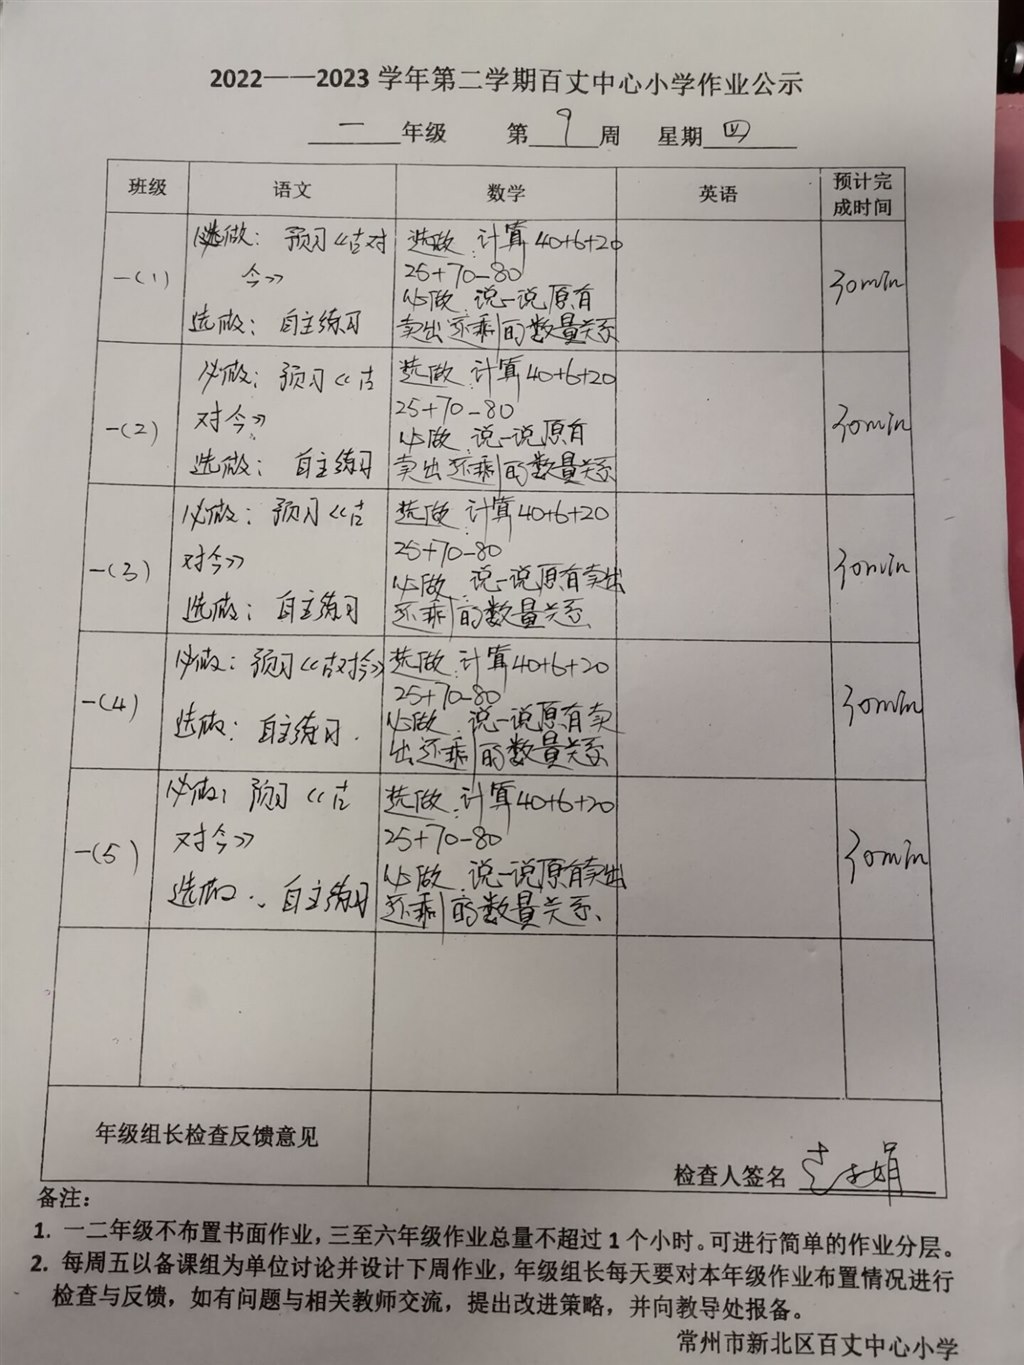 2022——2023 学年第二学期百丈中心小学作业公示
一 年级 第 9 周 星期 四
班级 语文 数学 英语 预计完成时间
一(1)
必做：预习《古对
今》
选做：自主练习
选做 计算40+6+20
25+70-80
必做 说一说原有
卖出还剩的数量关系
30min
一(2)
必做：预习《古
对今》
选做：自主练习
选做 计算40+6+20
25+70-80
必做 说一说原有
卖出还剩的数量关系
30min
一(3)
必做：预习《古
对今》
选做：自主练习
选做 计算40+6+20
25+70-80
必做 说一说原有卖出
还剩的数量关系
30min
一(4)
必做：预习《古对今》
选做：自主练习.
选做 计算40+6+20
25+70-80
必做 说一说原有卖
出还剩的数量关系
30min
一(5)
必做：预习《古
对今》
选做：自主练习
选做 计算40+6+20
25+70-80
必做 说一说原有卖出
还剩的数量关系、
30min
年级组长检查反馈意见
检查人签名
备注：
1. 一二年级不布置书面作业，三至六年级作业总量不超过 1 个小时。可进行简单的作业分层。
2. 每周五以备课组为单位讨论并设计下周作业，年级组长每天要对本年级作业布置情况进行
检查与反馈，如有问题与相关教师交流，提出改进策略，并向教导处报备。
常州市新北区百丈中心小学